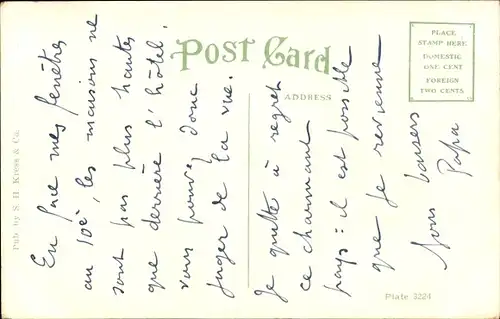 Post Card
ADDRESS
PLACE
STAMP HERE
DOMESTIC
ONE CENT
FOREIGN
TWO CENTS
Pub. by S. H. Kress & Co.
En face mes fenêtres
au 10è, les maisons ne
sont pas plus hautes
que derrière l'hôtel.
vous pouvez donc
juger de la vue.
Je quitte à regret
ce charmant
pays: il est possible
que je revienne
bons baisers
Papa
Plate 3224